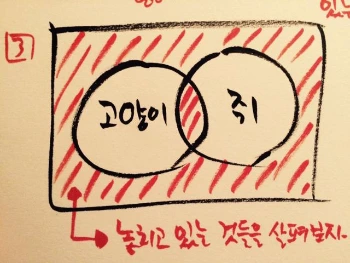 3
고양이
쥐
놓치고 있는 것들을 살펴보자.